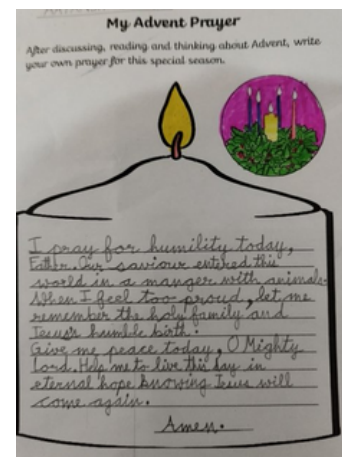 My Advent Prayer
After discussing, reading and thinking about Advent, write
your own prayer for this special season.
I pray for humility today,
Father. Our saviour entered this
world in a manger with animals.
When I feel too proud, let me
remember the holy family and
Jesus's humble birth.
Give me peace today, O Mighty
Lord. Help me to live this day in
eternal hope knowing Jesus will
come again.
Amen.